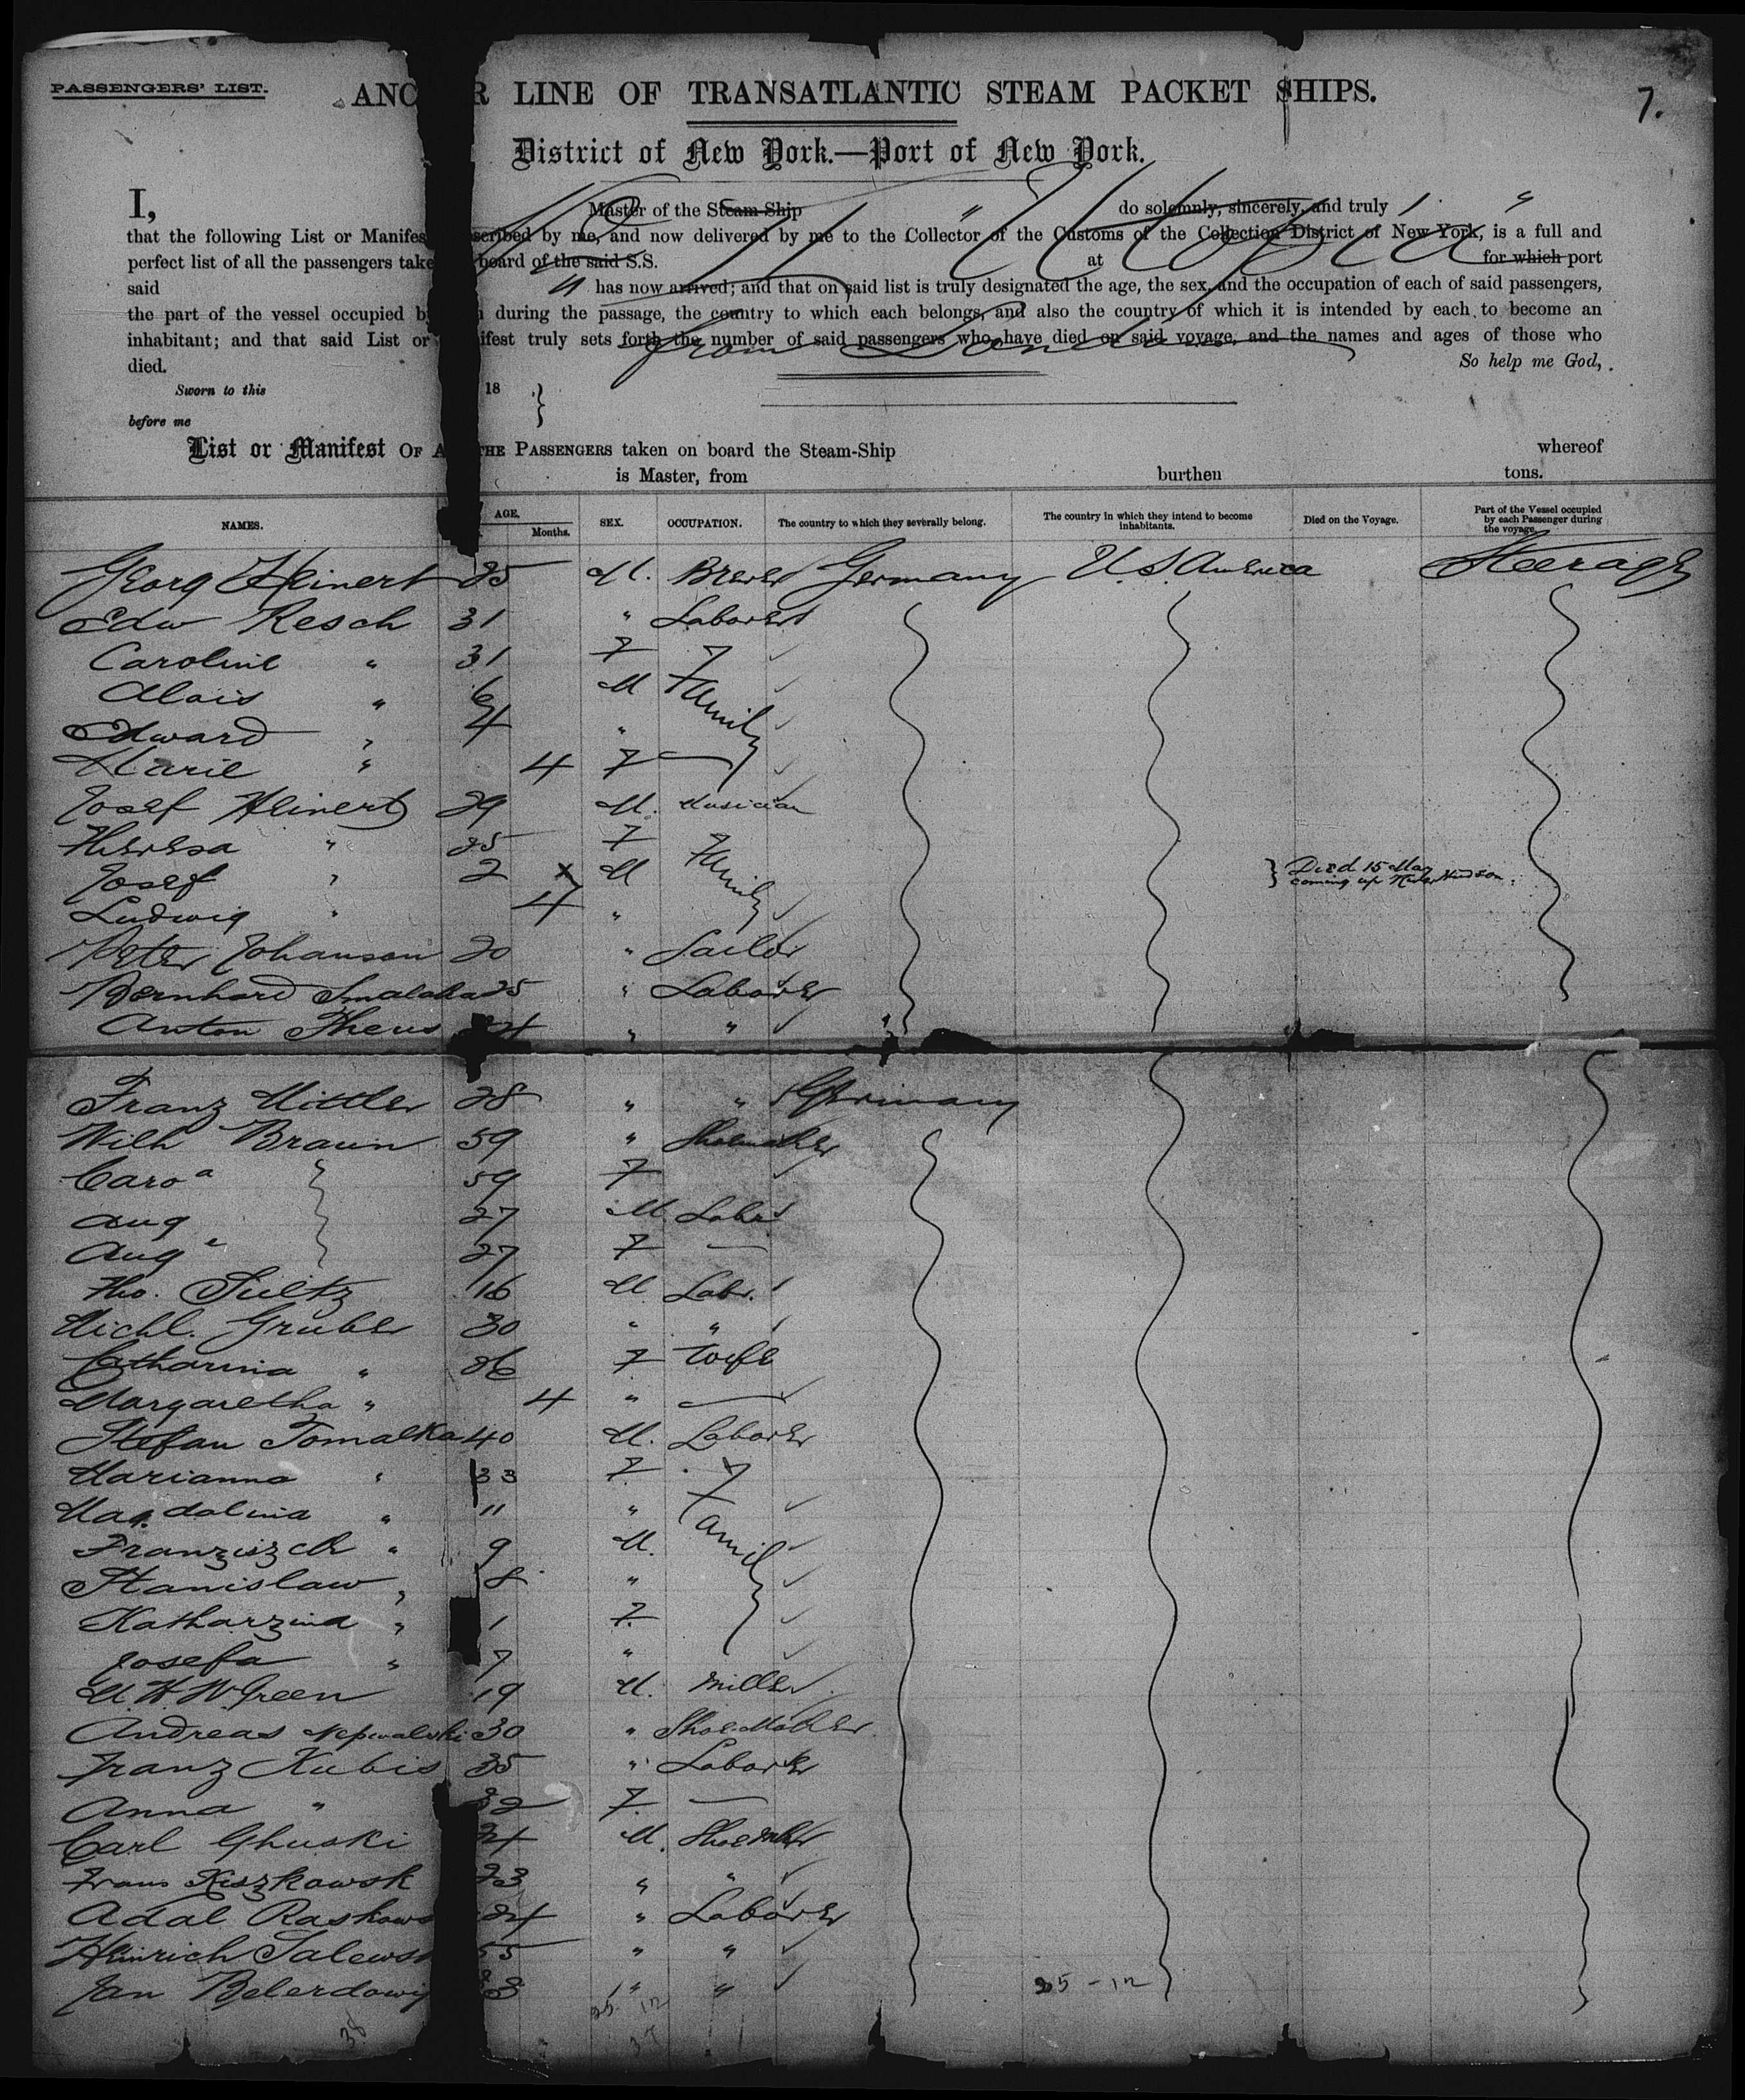 PASSENGERS' LIST.
ANC R LINE OF TRANSATLANTIC STEAM PACKET SHIPS.
7.
District of New York.—Port of New York.
I, Master of the Steam Ship " do solemnly, sincerely, and truly
that the following List or Manifes scribed by me, and now delivered by me to the Collector of the Customs of the Collection District of New York, is a full and
perfect list of all the passengers take board of the said S.S. at for which port
said has now arrived; and that on said list is truly designated the age, the sex, and the occupation of each of said passengers,
the part of the vessel occupied b during the passage, the country to which each belongs, and also the country of which it is intended by each to become an
inhabitant; and that said List or ifest truly sets forth the number of said passengers who have died on said voyage, and the names and ages of those who
died. So help me God,
S.S. Utopia
from London
Sworn to this 18
before me
List or Manifest OF A THE PASSENGERS taken on board the Steam-Ship whereof
is Master, from burthen tons.
NAMES. AGE. Months. SEX. OCCUPATION. The country to which they severally belong. The country in which they intend to become inhabitants. Died on the Voyage. Part of the Vessel occupied by each Passenger during the voyage.
Georg Heinert 25 M. Brewer Germany U.S. America Steerage
Edw Resch 31 " Laborer
Caroline " 31 F
Alois " 6 M Family
Edward " 4 "
Marie " 4 F
Josef Heinert 29 M. Musician
Theresa " 25 F
Josef " 2 x M Family } Died 15 May coming up River Hudson.
Ludwig " 4 "
Peter Johanson 20 " Sailor
Bernhard Smalakka 25 " Laborer
Anton Theus 24 " "
Franz Mittler 28 " " Germany
Wilh Braun 59 " Shoemaker
Caroa } 59 F
Aug } 27 M. Labr
Auga } 27 F —
Tho. Sieltz 16 M Labr.
Michl. Gruber 30 " "
Catharina " 26 F Wife
Margaretha " 4 " —
Stefan Tomalka 40 M. Laborer
Marianna " 33 F
Magdalina " 11 " Family
Franziszek " 9 M.
Stanislaw " 8 "
Katharzina " 1 F.
Josefa " 7 "
M. H. W. Green 19 M. Miller
Andreas 30 " Shoe Maker
Franz Kubis 35 " Laborer
Anna " 32 F. —
Carl Ghuski 24 M. Shoemkr
Frans Kiszkowsk 23 " "
Adal Raskows 24 " Laborer
Heinrich Salews 55 " "
Jan Belerdowi 3 " "
25-12
25 12
38
37